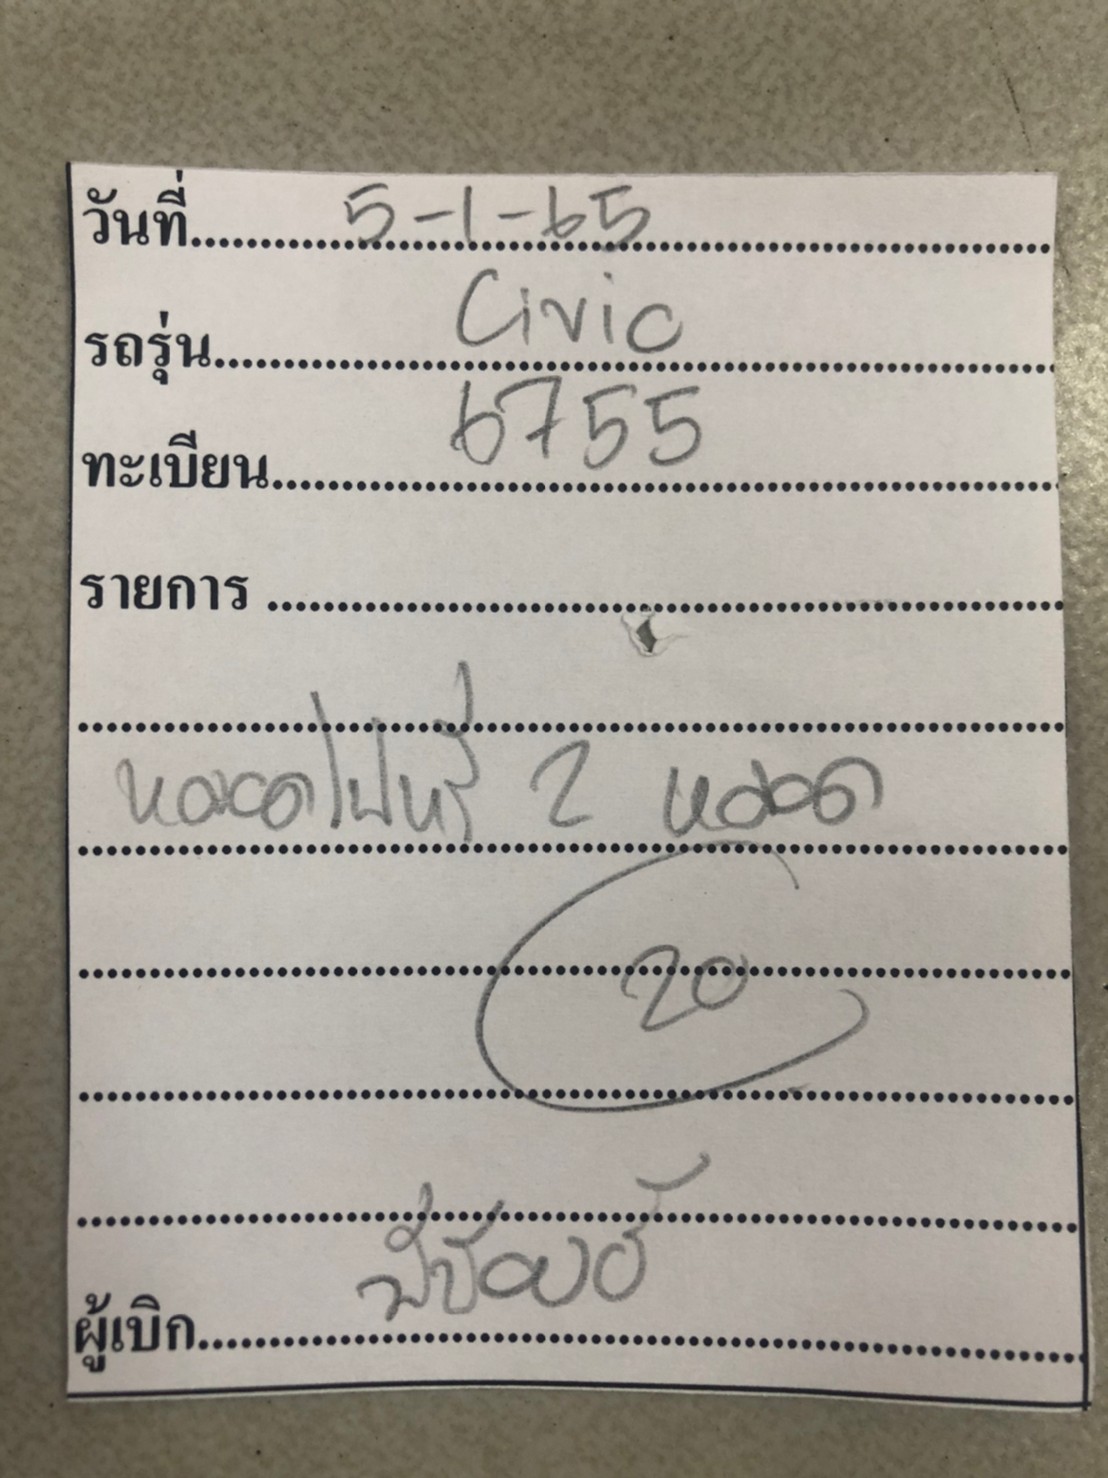 วันที่ 5-1-65
รถรุ่น Civic
ทะเบียน 6755
รายการ
หลอดไฟหรี่ 2 หลอด
20
ผู้เบิก